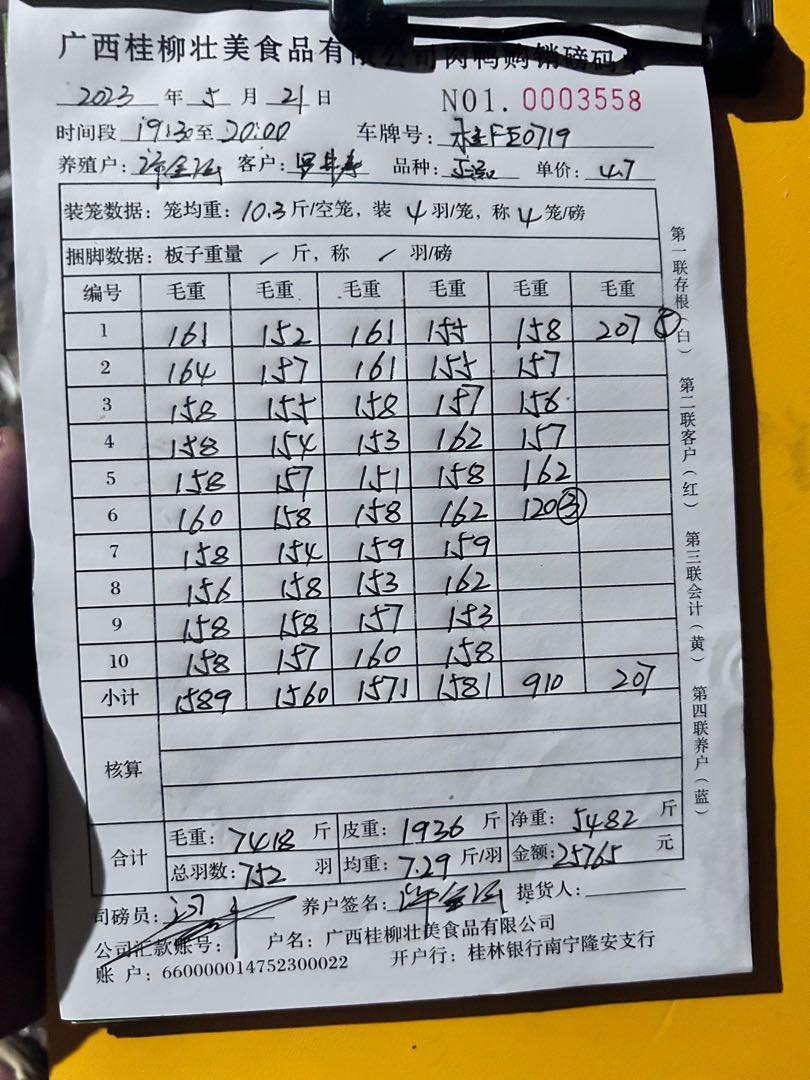 广西桂柳壮美食品有限公司肉鸭购销磅码单
2023 年 5 月 21 日 NO1. 0003558
时间段 19:30 至 20:00 车牌号: 桂FE0719
养殖户: 客户: 品种: 单价: 4.7
装笼数据: 笼均重: 10.3 斤/空笼, 装 4 羽/笼, 称 4 笼/磅
捆脚数据: 板子重量 / 斤, 称 / 羽/磅
编号 毛重 毛重 毛重 毛重 毛重 毛重
1 161 152 161 155 158 207 ⑤
2 164 157 161 155 157
3 158 155 158 157 156
4 158 154 153 162 157
5 158 157 151 158 162
6 160 158 158 162 120 ③
7 158 154 159 159
8 156 158 153 162
9 158 158 157 153
10 158 157 160 158
小计 1589 1560 1571 1581 910 207
核算
合计 毛重: 7418 斤 皮重: 1936 斤 净重: 5482 斤
总羽数: 752 羽 均重: 7.29 斤/羽 金额: 25765 元
司磅员: 养户签名: 提货人:
公司汇款账号: 户名: 广西桂柳壮美食品有限公司
账 户: 660000014752300022 开户行: 桂林银行南宁隆安支行
第一联存根(白) 第二联客户(红) 第三联会计(黄) 第四联养户(蓝)